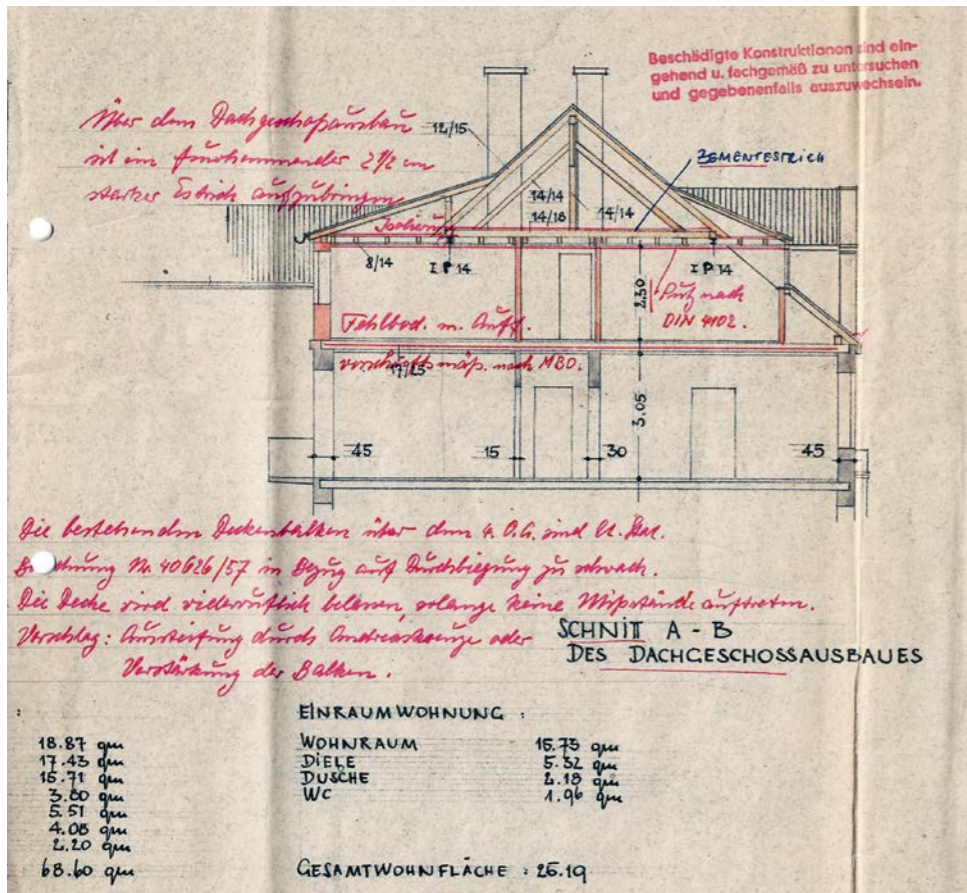 Beschädigte Konstruktionen sind ein-
gehend u. fachgemäß zu untersuchen
und gegebenenfalls auszuwechseln.
Über dem Dachgeschoßausbau
ist ein 2 1/2 cm
starker Estrich aufzubringen
12/15
ZEMENTESTRICH
14/14
14/18
14/14
Isolierung
8/14
I P 14
I P 14
2.30
Putz nach
DIN 4102.
Fehlbod. m. Auff.
vorschriftsmäß. nach MBO.
17/25
3.05
45
15
30
45
Die bestehenden Deckenbalken über dem 1. O.G. sind lt. stat.
Berechnung Nr. 40626/57 in Bezug auf Durchbiegung zu schwach.
Die Decke wird widerruflich belassen, solange keine Mißstände auftreten.
Vorschlag: Aussteifung durch Andreaskreuze oder
Verstärkung der Balken.
SCHNITT A - B
DES DACHGESCHOSSAUSBAUES
:
18.87 qm
17.43 qm
15.71 qm
3.80 qm
5.51 qm
4.08 qm
2.20 qm
68.60 qm
EINRAUMWOHNUNG :
WOHNRAUM 15.73 qm
DIELE 5.32 qm
DUSCHE 2.18 qm
WC 1.96 qm
GESAMTWOHNFLÄCHE : 25.19